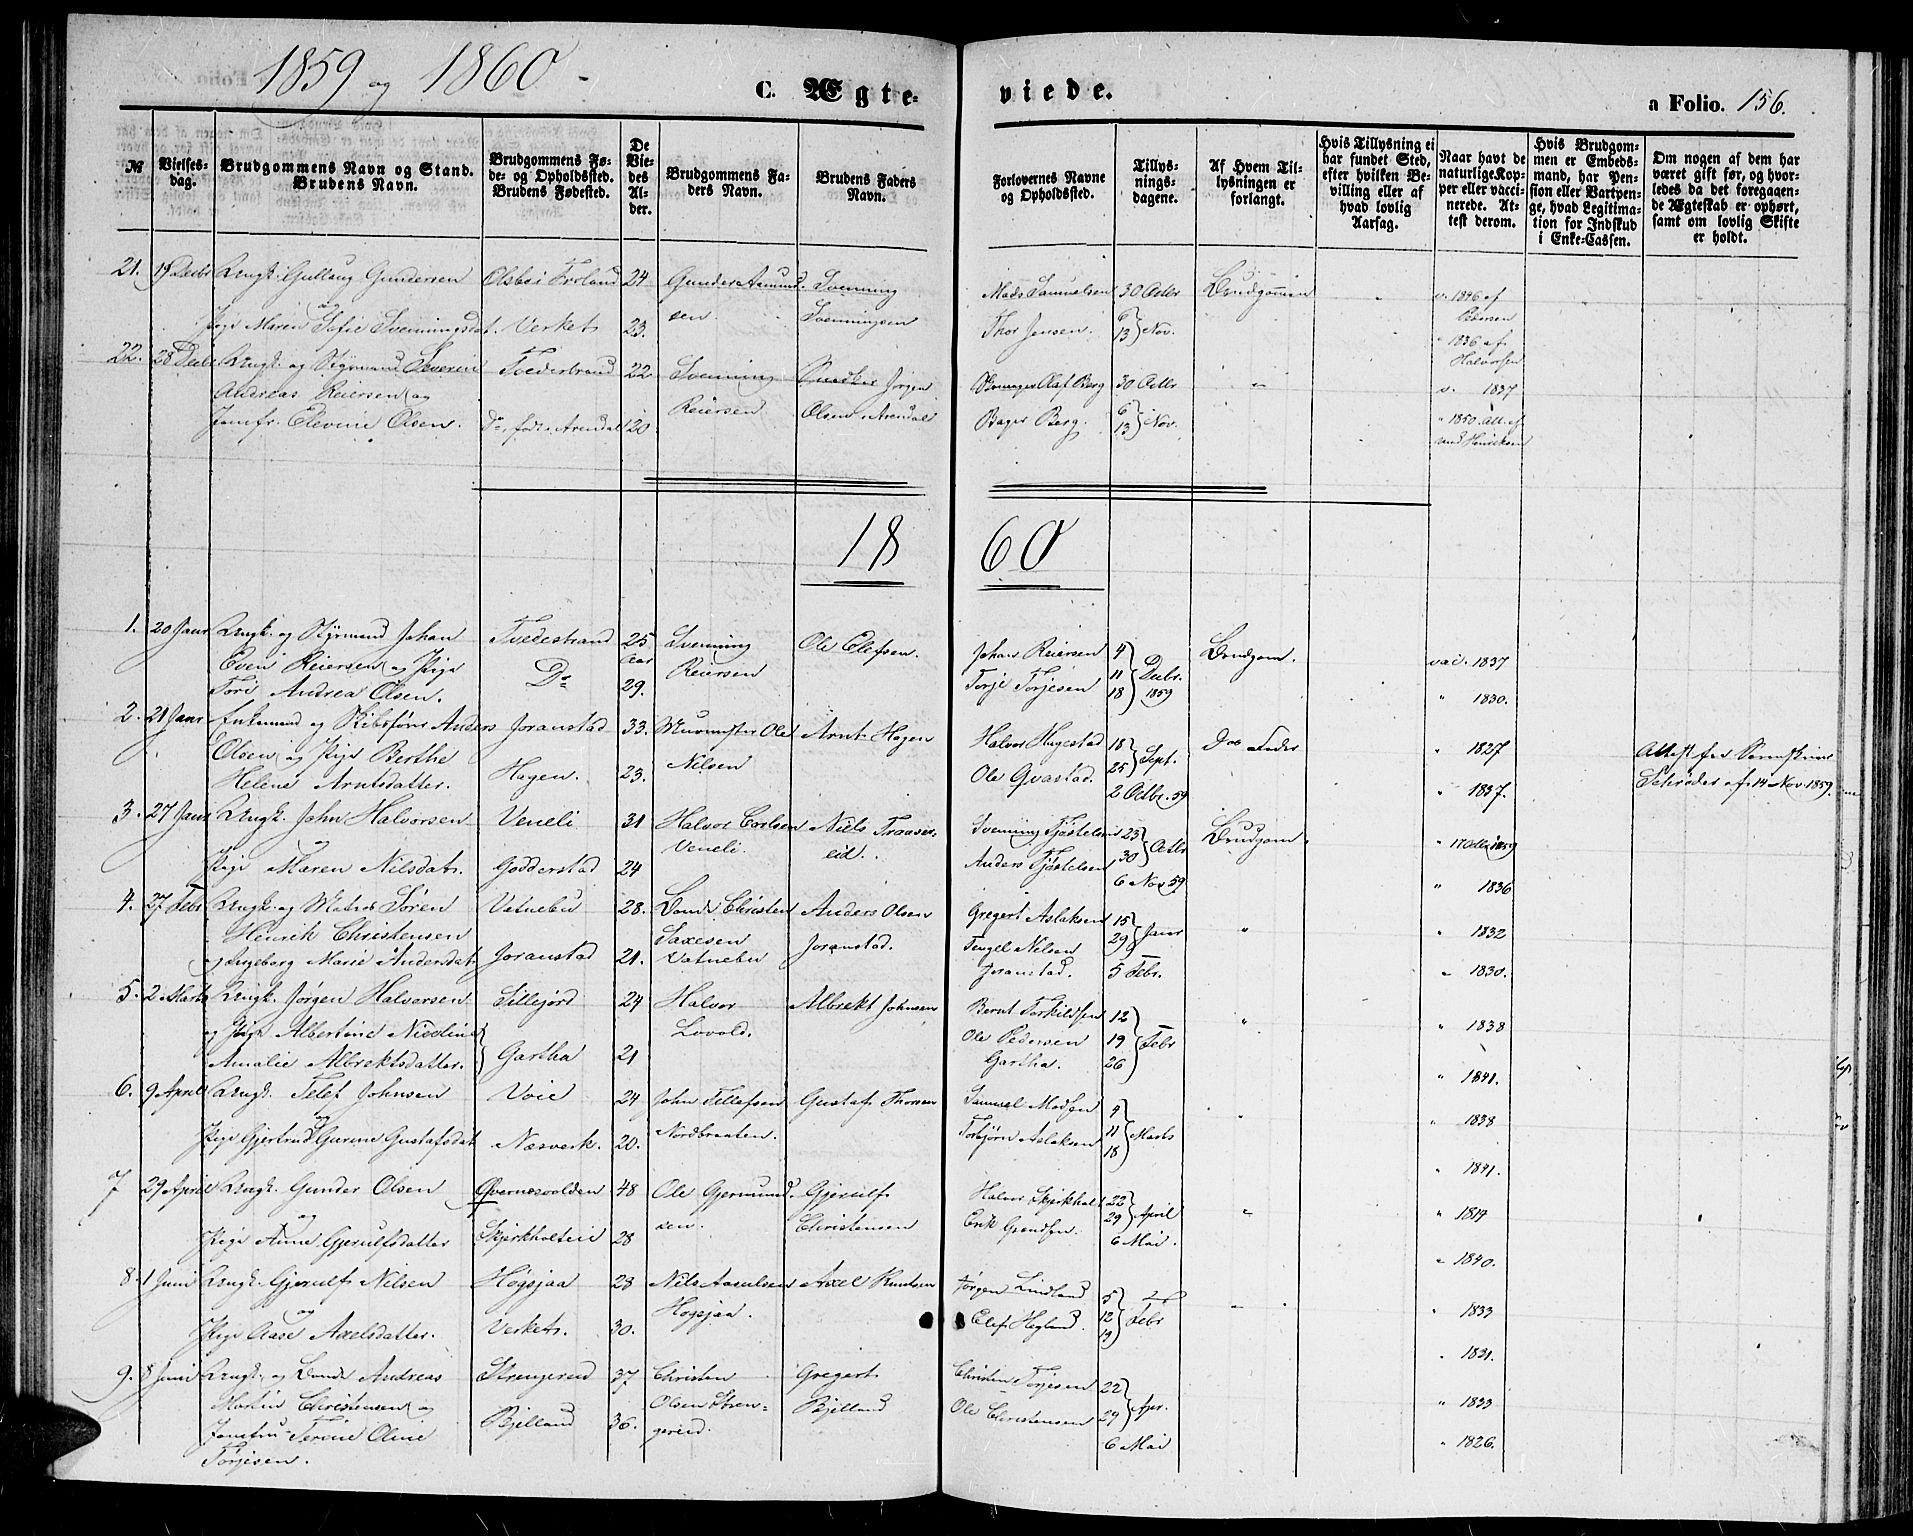 1859 og 1860
C. Ægte-
viede.
a Folio. 156.
№
Vielses-
dag.
Brudgommens Navn og Stand.
Brudens Navn.
Brudgommens Fø-
de- og Opholdssted.
Brudens Fødested.
De
Vie-
des
Al-
der.
Brudgommens Fa-
ders Navn.
Brudens Faders
Navn.
Forlovernes Navne
og Opholdssted.
Tillys-
nings-
dagene.
Af Hvem Til-
lysningen er
forlangt.
Hvis Tillysning ei
har fundet Sted,
efter hvilken Be-
villing eller af
hvad lovlig
Aarsag.
Naar havt de
naturlige Kop-
per eller vacci-
nerede. At-
test derom.
Hvis Brudgom-
men er Embeds-
mand, har Pen-
sion eller Vartpen-
ge, hvad Legitima-
tion for Indskud
i Enke-Cassen.
Om nogen af dem har
været gift før, og hvor-
ledes da det foregaaen-
de Ægteskab er ophørt,
samt om lovlig Skifte
er holdt.
21. 19 Decbr Ungk. Gullaug Gundersen Olsbu Froland 24 Gunder Aamund- Svenning Mads Samuelsen 30 Octbr Brudgommen v. 1846 af
og sen. Svenningsen Pedersen
Pige Maren Sofie Svenningsdat. Verket 23. Thor Jensen. 6 13 Nov. " 1836 af
Halvorsen
22. 28 Decbr Ungk. og Styrmand Severin Tvedestrand 22 Svenning Jørgen Olaf Berg 30 Octbr " v. 1837
Andreas Reiersen og Reiersen Olsen, Arendal
Jomfr. Elevine Olsen. Do, født i Arendal 20 Bager Berg. 6 13 Nov. " 1850. Att. af
Henriksen
18 60
1. 20 Janr Ungk. og Styrmand Johan Tvedestrand 25 Svenning Ole Olefsen. Johan Reiersen 4 Brudgom. vac. 1837
Even Reiersen og Pige Do Aar Reiersen 11 Decbr.
Tori Andrea Olsen. 29. Torje Torjesen 18 1859 " 1830.
2. 21 Janr Enkemand og Skibsfører Anders Joranstad 33. Murmester Ole Arnt Hagen Halvor Hagestad 18 Do Fader " 1827 Attest fra Sorenskriver
Olsen og Pige Berthe Nilsen 25 Sept.
Helene Arntsdatter. Hagen. 23. Ole Gvastad. 2 Octbr. 59 " 1837. Schrøder af 14 Nov. 1859.
3. 27 Janr Ungk. John Halvorsen Veneli 31 Halvor Carlsen Niels Svenning Tjøstelsen 23 Brudgom.
og Veneli. eid. 30 Octbr
Pige Maren Nilsdatr. Godderstad 24 Anders Tjøstelsen 6 Nov 59 " 1836
4. 27 Febr Ungk. og Matros Søren Vatnebu 28. Bonde Christen Anders Olsen Gregert Aslaksen 15 " " 1832
Henrik Christensen Saxesen Joranstad. Tengel Nilsen 29 Janr
og Ingeborg Marie Andersdat. Joranstad 21. Vatnebu Joranstad. 5 Febr. " 1830.
5. 2 Marts Ungk. Jørgen Halvorsen Sillejord 24 Halvor Albrekt Johnsen Bernt Torkildsen 12 " " 1838
og Pige Albertine Nicoline Lovold. Ole Pedersen 19 Febr
Amalie Albrektsdatter. Gartha 21 Gartha. 26 " 1841.
6. 9 April Ungk. Tellef Johnsen Voie 24 John Tellefsen Gustaf Thorsen Samuel Madsen 4 " " 1838
og Nordbraaten. 11 Marts
Pige Gjertrud Gurine Gustafsdat. Næsverk. 20. Torbjørn Aslaksen 18 " 1841.
7 29 April Ungk. Gunder Olsen Øvernesvolden 48 Ole Gjermund- Gjerulf Halvor Skjerkholt 22 " " 1817
og sen. Christensen 29 April
Pige Anne Gjerulfsdatter Skjerkholteie 28 6 Mai. " 1840.
8. 1 Juni Ungk. Gjerulf Nilsen Høgsjaa 28 Nils Aasulsen Axel Knutsen Jørgen Lindland 5 " " 1833
og Høgsjaa. 12 Febr
Pige Aase Axelsdatter. Verket. 30. Olef Hegland. 19 " 1831.
9. 8 Juni Ungk. og Bonde Andreas Strengereid 37 Christen Gregert Christen Torjesen 22 " 1833
Martin Christensen og Olsen Stren- Bjelland Ole Christensen 29 Apr.
Jomfru Terine Oline Bjelland 36. gereid. 6 Mai " 1826.
Torjesen.